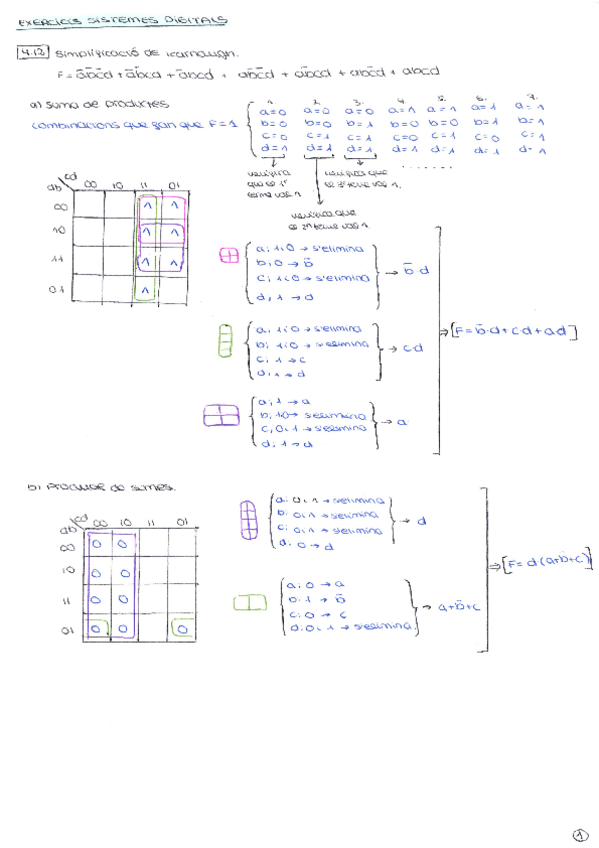 EXERCICIS SISTEMES DIGITALS
4.12 Simplificació de Karnaugh.
F = a̅b̅c̅d + a̅b̅cd + a̅bcd + ab̅c̅d + ab̅cd + abc̅d + abcd
a) Suma de productes
combinacions que fan que F=1
1. 2. 3. 4. 5. 6. 7.
a=0 a=0 a=0 a=1 a=1 a=1 a=1
b=0 b=0 b=1 b=0 b=0 b=1 b=1
c=0 c=1 c=1 c=0 c=1 c=0 c=1
d=1 d=1 d=1 d=1 d=1 d=1 d=1
verifica que el 1r terme val 1
verifica que el 3r terme val 1.
verifica que el 2n terme val 1.
ab cd 00 10 11 01
00 1 1
10 1 1
11 1 1
01 1
a: 1,0 → s'elimina
b: 0 → b̅
c: 1,0 → s'elimina
d: 1 → d
→ b̅·d
a: 1,0 → s'elimina
b: 1,0 → s'elimina
c: 1 → c
d: 1 → d
→ c·d
⇒ [F = b̅·d + c·d + a·d]
a: 1 → a
b: 1,0 → s'elimina
c: 0,1 → s'elimina
d: 1 → d
→ a
b) Producte de sumes.
ab cd 00 10 11 01
00 0 0
10 0 0
11 0 0
01 0 0 0
a: 0,1 → s'elimina
b: 0,1 → s'elimina
c: 0,1 → s'elimina
d: 0 → d
→ d
a: 0 → a
b: 1 → b̅
c: 0 → c
d: 0,1 → s'elimina.
→ a+b̅+c
⇒ [F = d(a+b̅+c)]
1